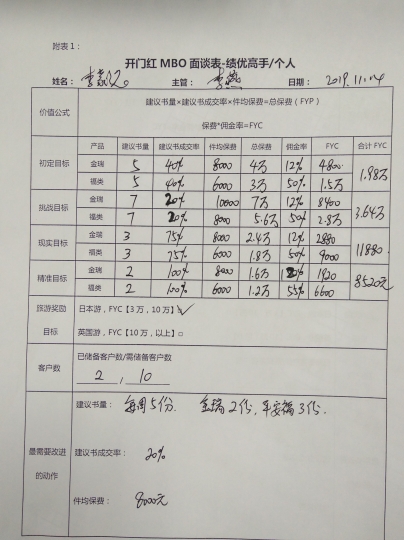 附表1：
开门红 MBO 面谈表-绩优高手/个人
姓名： 主管：李燕 日期：2019.11.14
价值公式 建议书量×建议书成交率×件均保费=总保费（FYP）
保费*佣金率=FYC
产品 建议书量 建议书成交率 件均保费 总保费 佣金率 FYC 合计 FYC
初定目标 金瑞 5 40% 8000 4万 12% 4800 1.98万
福类 5 40% 6000 3万 50% 1.5万
挑战目标 金瑞 7 20% 10000 7万 12% 8400 3.64万
福类 7 20% 8000 5.6万 50% 2.8万
现实目标 金瑞 3 75% 8000 2.4万 12% 2880 11880
福类 3 75% 6000 1.8万 50% 9000
精准目标 金瑞 2 100% 8000 1.6万 1920 8520元
福类 2 100% 6000 1.2万 55% 6600
旅游奖励 日本游，FYC【3 万，10 万】☑
目标 英国游，FYC【10 万，以上】□
客户数 已储备客户数/需储备客户数
2 / 10
建议书量：每周5份. 金瑞2份，平安福3份.
最需要改进 建议书成交率：20%
的动作
件均保费：8000元